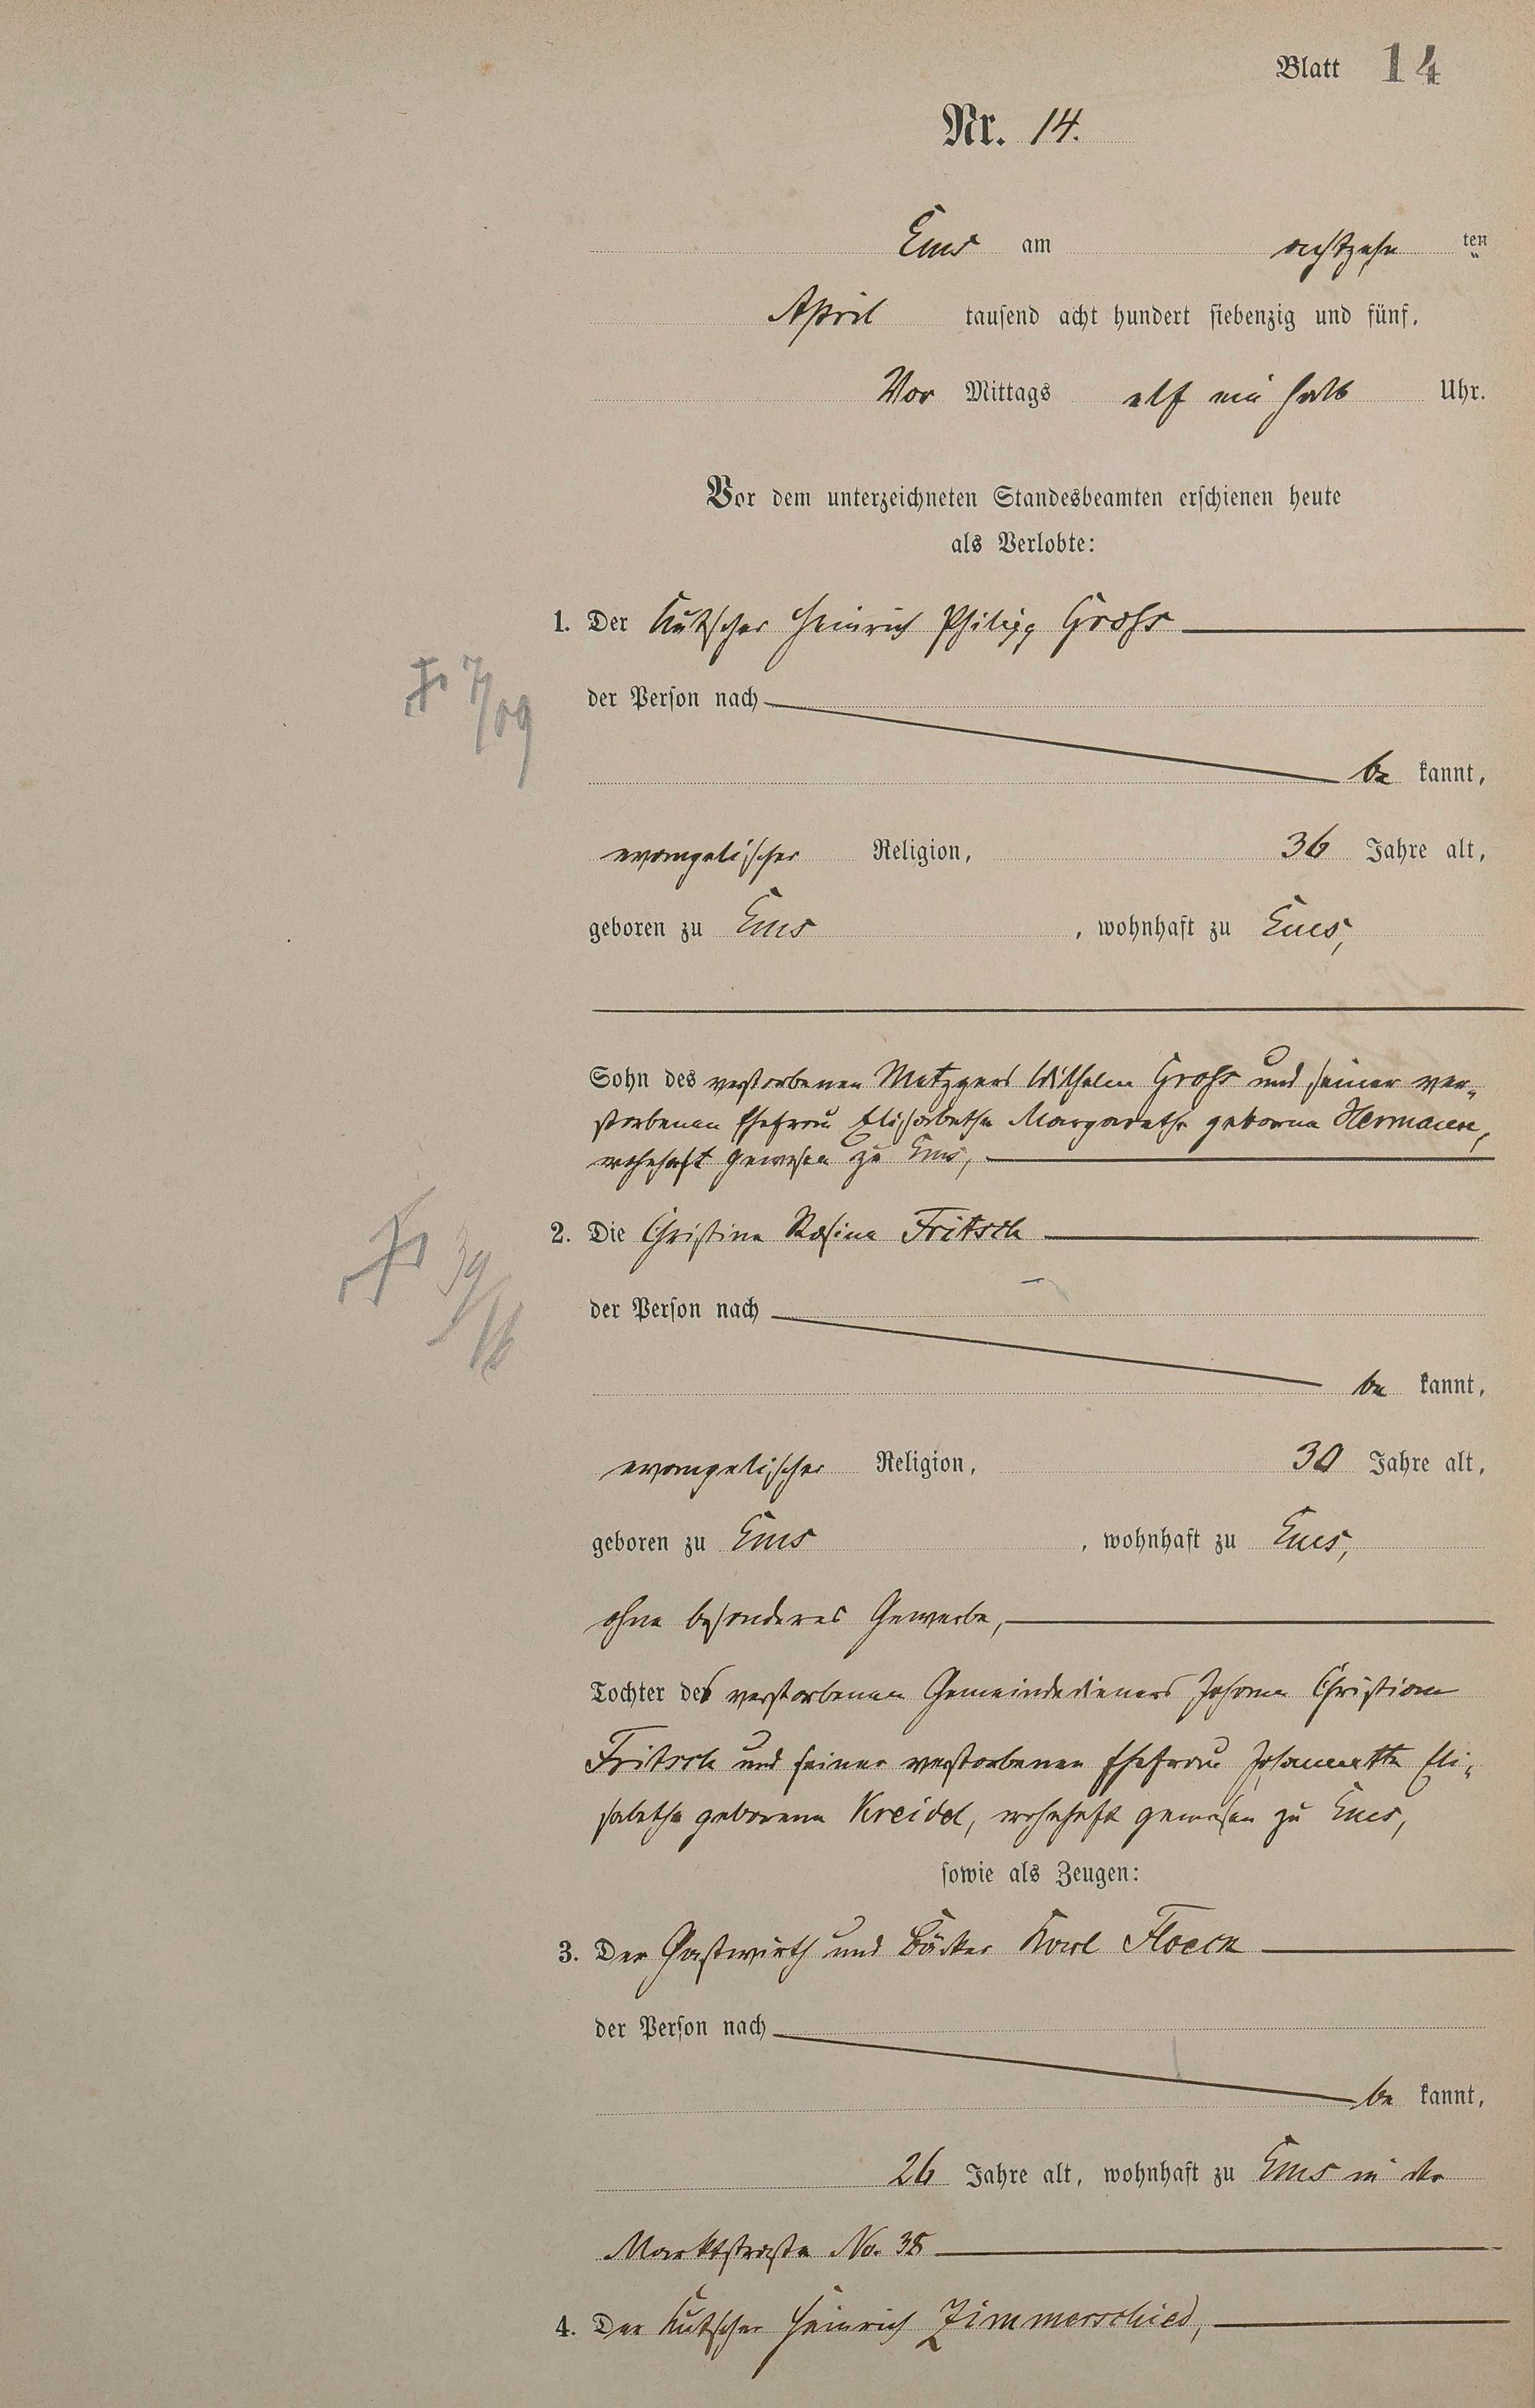 Blatt 14
Nr. 14.
Ems am achtzehn ten
April tausend acht hundert siebenzig und fünf,
Vor Mittags elf ein halb Uhr.
Vor dem unterzeichneten Standesbeamten erschienen heute
als Verlobte:
1. Der Kutscher Heinrich Philipp Groß
der Person nach
be kannt,
evangelischer Religion, 36 Jahre alt,
geboren zu Ems, wohnhaft zu Ems,
Sohn des verstorbenen Metzgers Wilhelm Groß und seiner ver-
storbenen Ehefrau Elisabethe Margarethe geborne Hermann,
wohnhaft gewesen zu Ems,
2. Die Christine Rosine Fritsch
der Person nach
be kannt,
evangelischer Religion, 30 Jahre alt,
geboren zu Ems, wohnhaft zu Ems,
ohne besonderes Gewerbe,
Tochter des verstorbenen Gemeindedieners Johann Christian
Fritsch und seiner verstorbenen Ehefrau Johannette Eli-
sabethe geborene Kreidel, wohnhaft gewesen zu Ems,
sowie als Zeugen:
3. Der Gastwirth und Bäcker Karl Floeck
der Person nach
be kannt,
26 Jahre alt, wohnhaft zu Ems in der
Marktstraße No. 38
4. Der Kutscher Heinrich Zimmerschied,